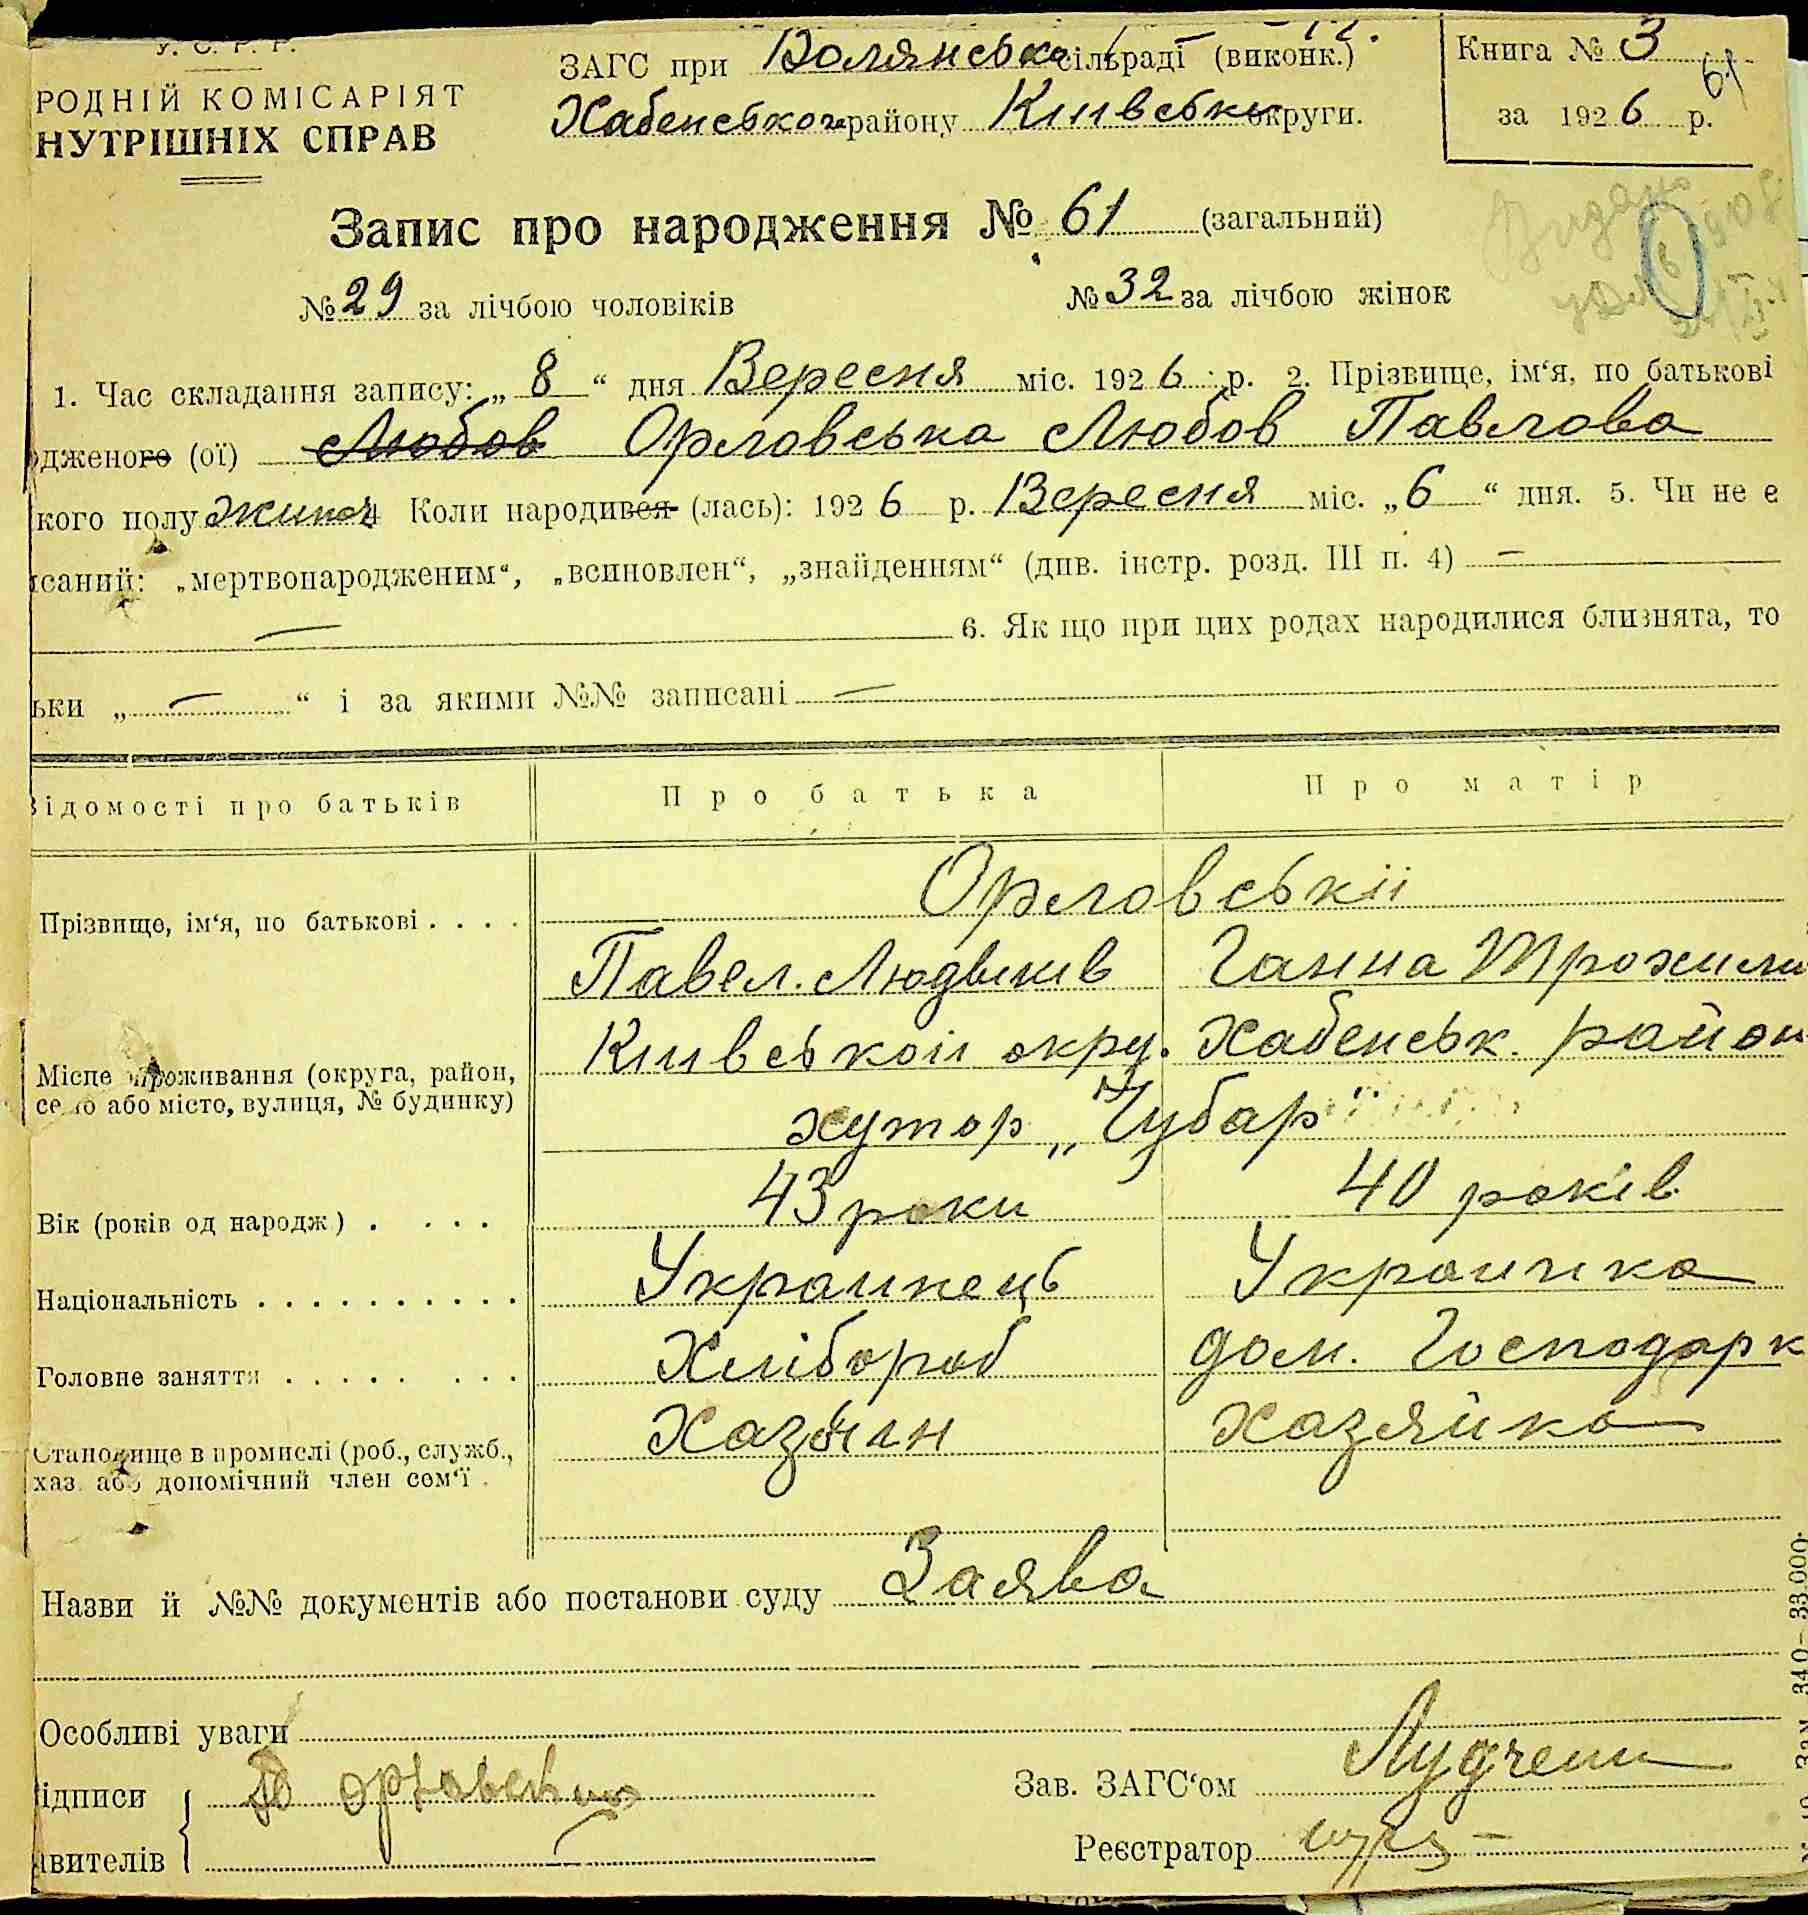 У. С. Р. Р.
РОДНІЙ КОМІСАРІЯТ
НУТРІШНІХ СПРАВ
ЗАГС при Волянська сільраді (виконк.)
Хабенського району Київської округи.
Книга № 3
61
за 1926 р.
Запис про народження № 61 (загальний)
№ 29 за лічбою чоловіків № 32 за лічбою жінок
1. Час складання запису: „ 8 “ дня Вересня міс. 1926 р. 2. Прізвище, ім‘я, по батькові
дженого (ої) Любов Орловська Любов Павлова
кого полу жиноч Коли народився (лась): 1926 р. Вересня міс. „ 6 “ дня. 5. Чи не є
исаний: „мертвонародженим“, „всиновлен“, „знайденням“ (див. інстр. розд. III п. 4) —
— 6. Як що при цих родах народилися близнята, то
ьки „ — “ і за якими №№ записані —
Відомості про батьків Про батька Про матір
Орловськіи
Прізвище, ім‘я, по батькові . . . .
Павел. Людвиків Ганна Трохими
Киівськоі окру. Хабенськ. район
Місце проживання (округа, район,
село або місто, вулиця, № будинку)
хутор „Чубар“
Вік (років од народж.) . . . . 43 роки 40 років
Національність . . . . . . . . . . Украинець Украинка
Головне заняття . . . . . . . . Хлібороб дом. Господарк
Становище в промислі (роб., служб.,
хаз. або допомічний член сем‘ї .
Хазяин Хазяйка
Назви й №№ документів або постанови суду Заява
Особливі уваги
ідписи
явителів
Зав. ЗАГС‘ом
Реєстратор
340—33.000.